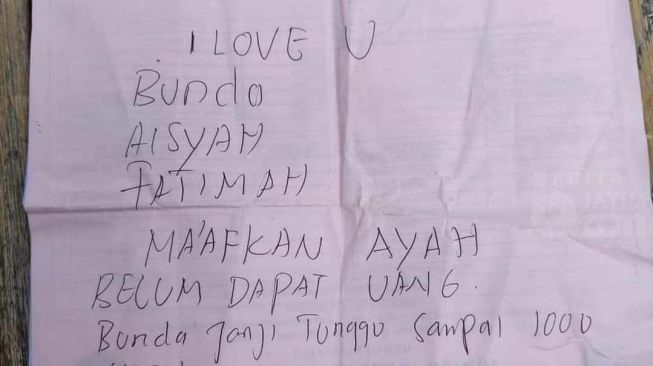 I LOVE U
Bunda
AISYAH
FATIMAH
MA'AFKAN AYAH
BELUM DAPAT UANG.
Bunda Janji Tunggu Sampai 1000